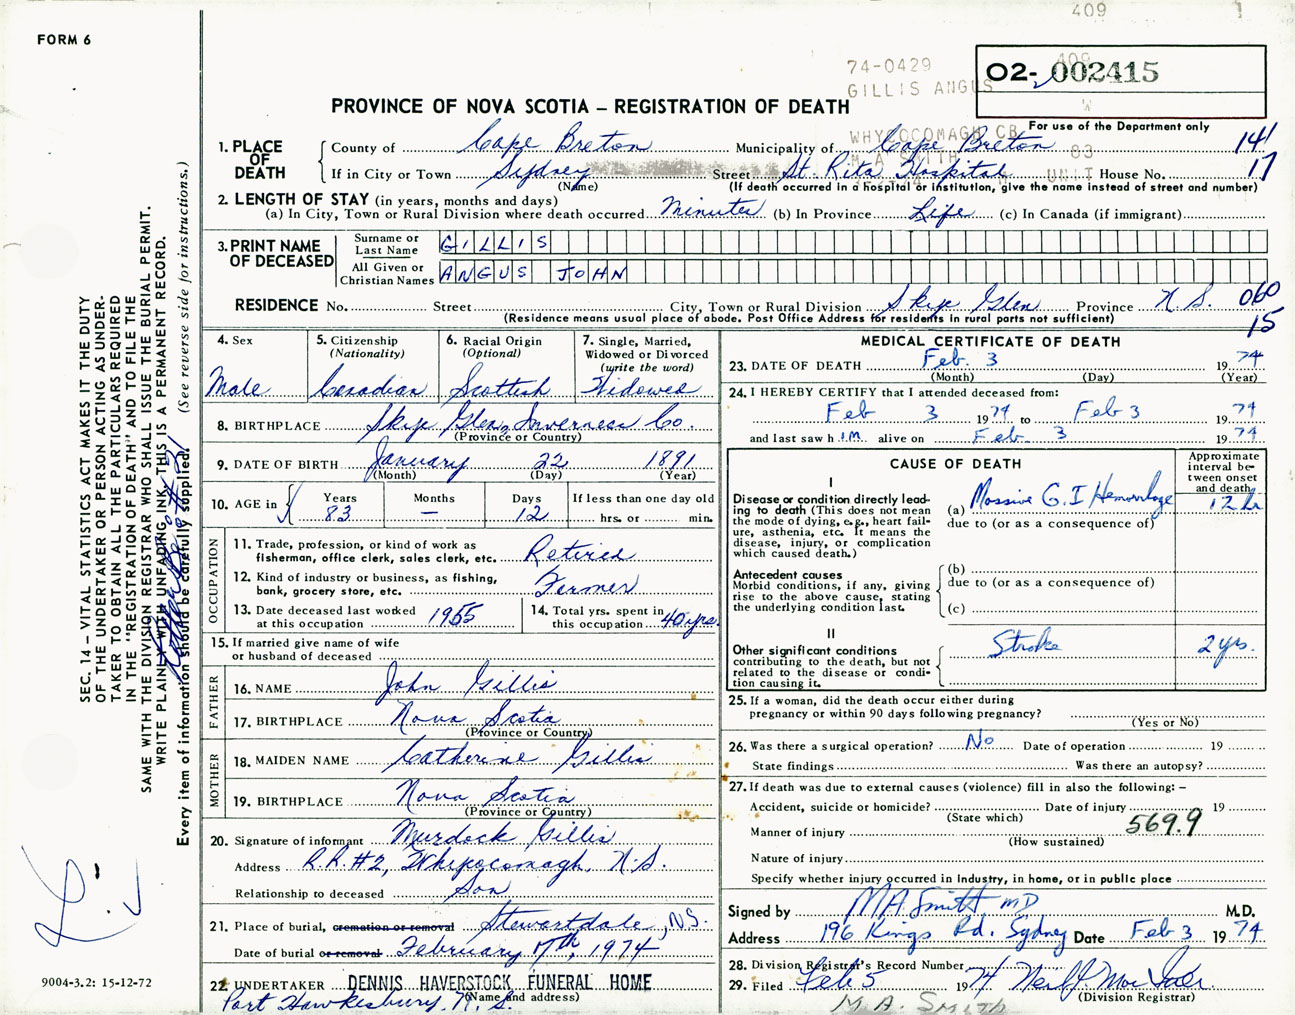 409
FORM 6
74-0429
GILLIS ANGUS
O2- 002415
409
W
PROVINCE OF NOVA SCOTIA – REGISTRATION OF DEATH
For use of the Department only
WHYCOCOMAGH CB
M A SMITH
83
UNIT
1. PLACE OF DEATH
County of Cape Breton Municipality of Cape Breton 141
If in City or Town Sydney Street St. Rita Hospital House No. 17
(Name) (If death occurred in a hospital or institution, give the name instead of street and number)
2. LENGTH OF STAY (in years, months and days)
(a) In City, Town or Rural Division where death occurred Minutes (b) In Province Life (c) In Canada (if immigrant)
3. PRINT NAME OF DECEASED
Surname or Last Name GILLIS
All Given or Christian Names ANGUS JOHN
RESIDENCE No. Street City, Town or Rural Division Skye Glen Province N.S. 060
(Residence means usual place of abode. Post Office Address for residents in rural parts not sufficient) 15
4. Sex
Male
5. Citizenship
(Nationality)
Canadian
6. Racial Origin
(Optional)
Scottish
7. Single, Married,
Widowed or Divorced
(write the word)
Widowed
8. BIRTHPLACE Skye Glen, Inverness Co.
(Province or Country)
9. DATE OF BIRTH January 22 1891
(Month) (Day) (Year)
10. AGE in
Years Months Days If less than one day old
83 – 12 hrs. or min.
OCCUPATION
11. Trade, profession, or kind of work as
fisherman, office clerk, sales clerk, etc. Retired
12. Kind of industry or business, as fishing,
bank, grocery store, etc. Farmer
13. Date deceased last worked
at this occupation 1955
14. Total yrs. spent in
this occupation 40 yrs.
15. If married give name of wife
or husband of deceased
FATHER
16. NAME John Gillis
17. BIRTHPLACE Nova Scotia
(Province or Country)
MOTHER
18. MAIDEN NAME Catherine Gillis
19. BIRTHPLACE Nova Scotia
(Province or Country)
20. Signature of informant Murdock Gillis
Address R.R.#2, Whycocomagh, N.S.
Relationship to deceased Son
21. Place of burial, cremation or removal Stewartdale, N.S.
Date of burial or removal February 7th, 1974
22. UNDERTAKER DENNIS HAVERSTOCK FUNERAL HOME
Port Hawkesbury, N.S. (Name and address)
MEDICAL CERTIFICATE OF DEATH
23. DATE OF DEATH Feb. 3 19 74
(Month) (Day) (Year)
24. I HEREBY CERTIFY that I attended deceased from:
Feb 3 19 74 to Feb 3 19 74
and last saw h im alive on Feb. 3 19 74
CAUSE OF DEATH
Approximate
interval be-
tween onset
and death
I
Disease or condition directly lead-
ing to death (This does not mean
the mode of dying, e.g., heart fail-
ure, asthenia, etc. It means the
disease, injury, or complication
which caused death.)
(a) Massive G.I Hemorrhage 12 hr
due to (or as a consequence of)
Antecedent causes
Morbid conditions, if any, giving
rise to the above cause, stating
the underlying condition last.
(b)
due to (or as a consequence of)
(c)
II
Other significant conditions
contributing to the death, but not
related to the disease or condi-
tion causing it.
Stroke 2 yrs.
25. If a woman, did the death occur either during
pregnancy or within 90 days following pregnancy?
(Yes or No)
26. Was there a surgical operation? No Date of operation 19
State findings Was there an autopsy?
27. If death was due to external causes (violence) fill in also the following: –
Accident, suicide or homicide? Date of injury 19
(State which)
Manner of injury 569.9
(How sustained)
Nature of injury
Specify whether injury occurred in Industry, in home, or in public place
Signed by M A Smith MD M.D.
Address 196 Kings Rd. Sydney Date Feb 3 19 74
28. Division Registrar's Record Number
29. Filed Feb 5 1974
(Division Registrar)
M. A. SMITH
SEC. 14 – VITAL STATISTICS ACT MAKES IT THE DUTY
OF THE UNDERTAKER OR PERSON ACTING AS UNDER-
TAKER TO OBTAIN ALL THE PARTICULARS REQUIRED
IN THE "REGISTRATION OF DEATH" AND TO FILE THE
SAME WITH THE DIVISION REGISTRAR WHO SHALL ISSUE THE BURIAL PERMIT.
WRITE PLAINLY WITH UNFADING INK. THIS IS A PERMANENT RECORD.
Every item of information should be carefully supplied. (See reverse side for instructions.)
9004-3.2: 15-12-72